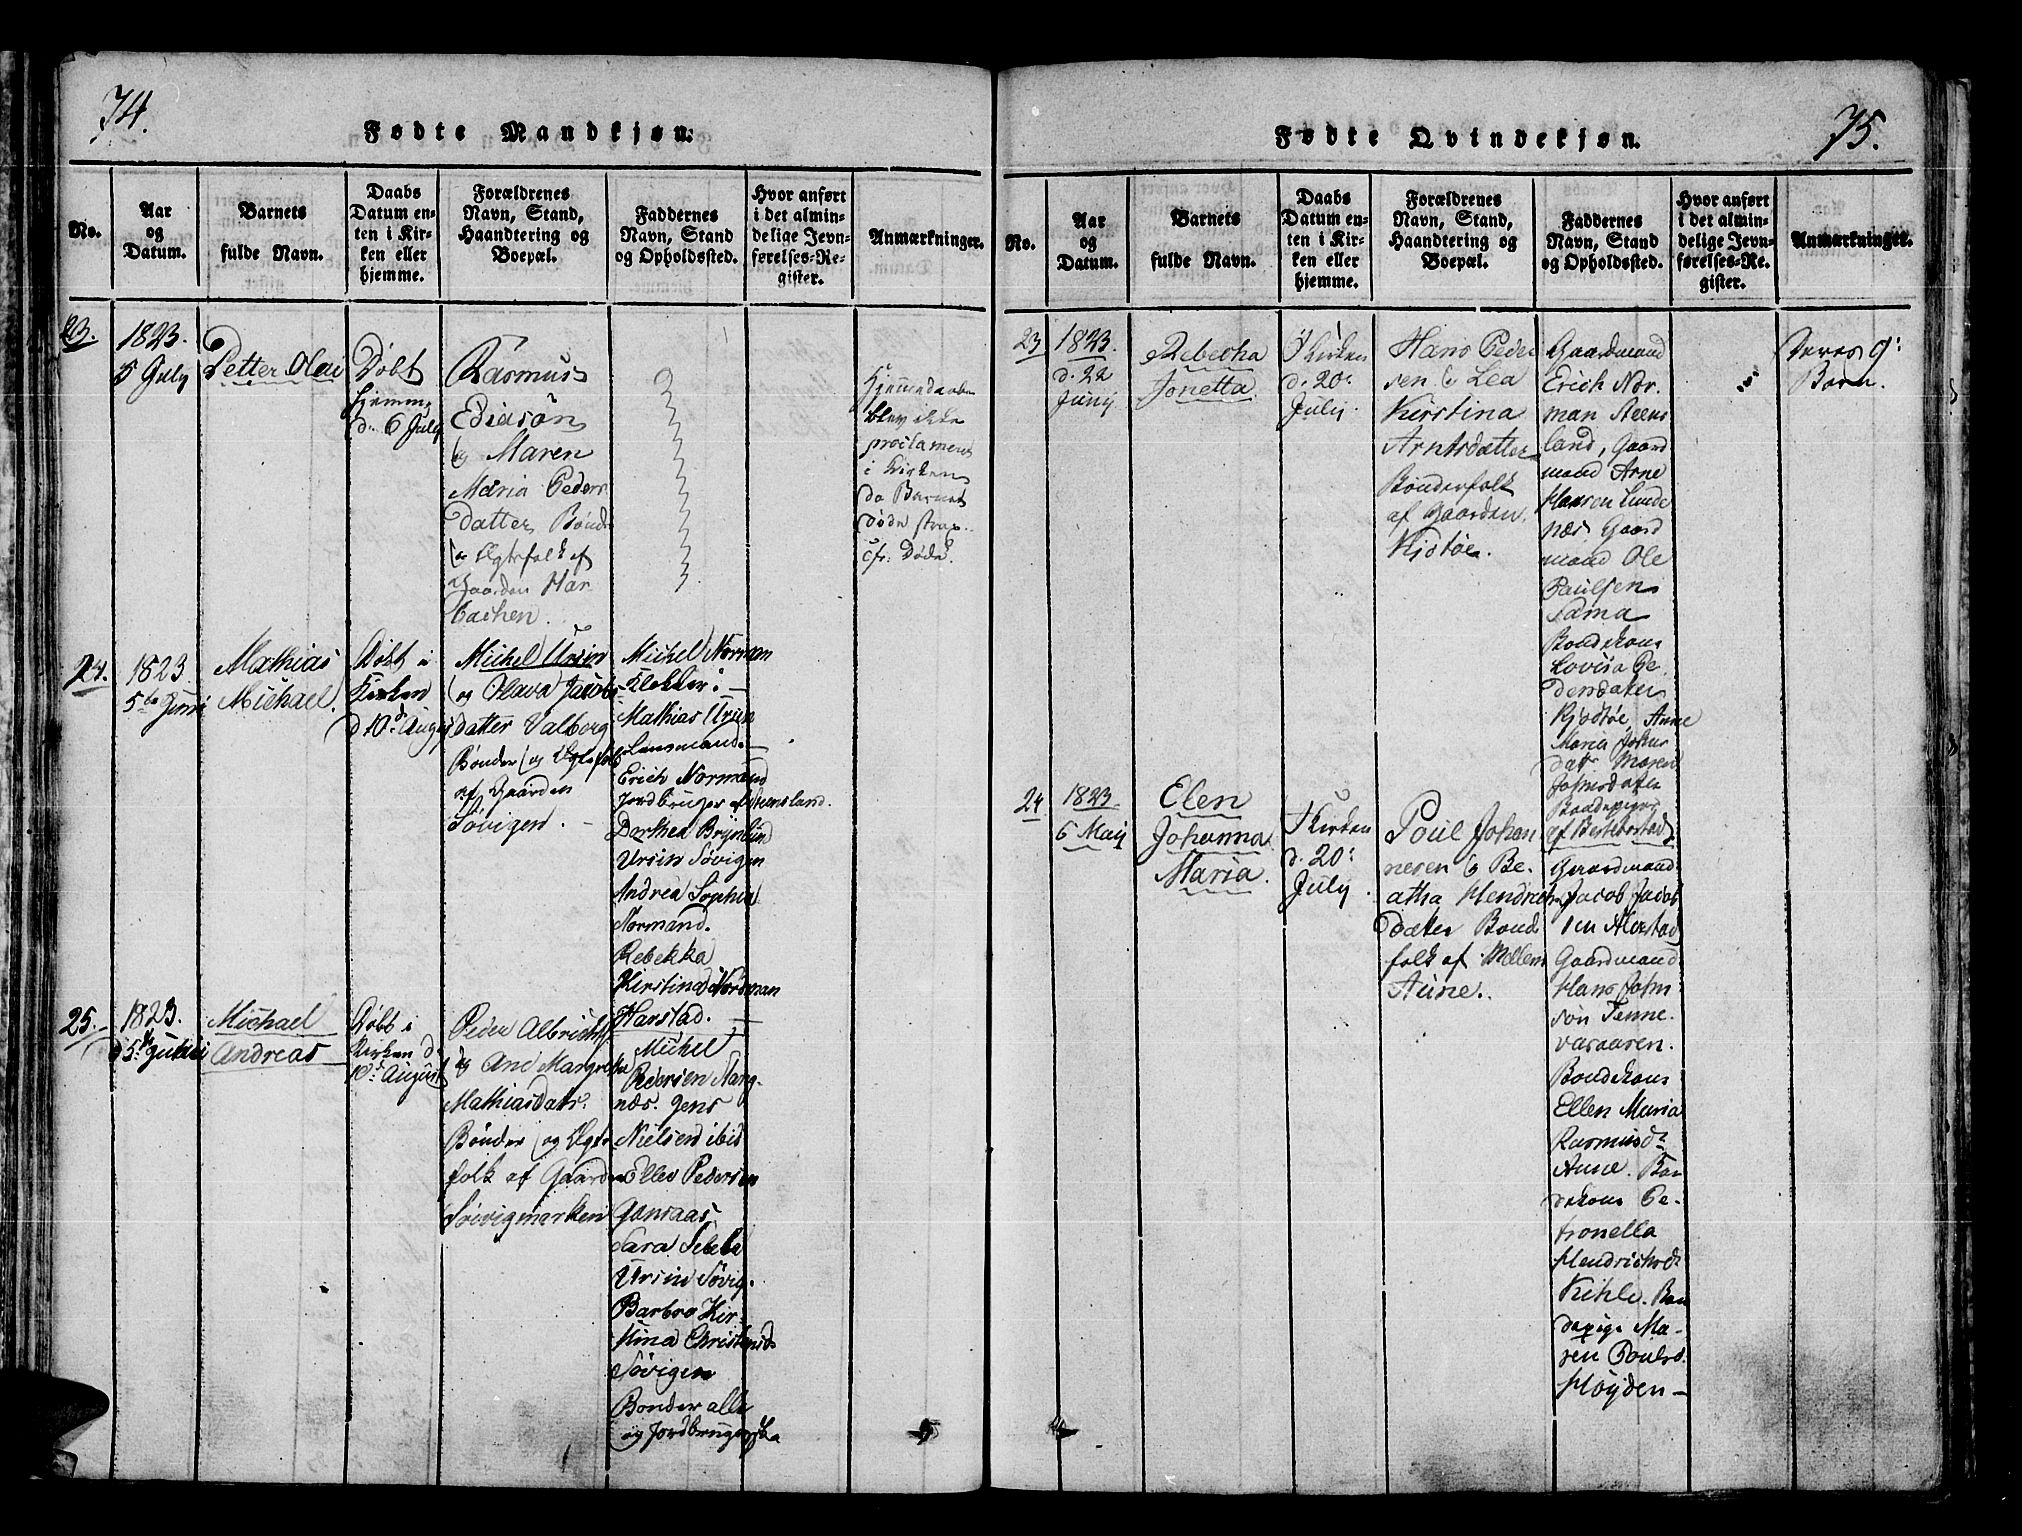 74.
Fødte Mandkjøn.
No.
Aar
og
Datum.
Barnets
fulde Navn.
Daabs
Datum en-
ten i Kir-
ken eller
hjemme.
Forældrenes
Navn, Stand,
Haandtering og
Boepæl.
Faddernes
Navn, Stand
og Opholdssted.
Hvor anført
i det almin-
delige Jevn-
førelses-Re-
gister.
Anmærkninger.
23.
1823.
5 July
Petter Olai
Döbt
hjemme
d. 6 July
Rasmus
Eliasön
og Maren
Maria Peders
datter Bönd
og Ægtefolk af
Gaarden Har
bachen.
Hjemmedaaben
blev ikke
proclameret
i Kirken
da Barnet
døde strax.
cfr. Døde.
24.
1823
5te Juni
Mathias
Michael.
Döbt i
Kirken
d 10d August
Michel Ursin
og Olava Jacobs
datter Valberg
Bönder og Ægtefolk
af Gaarden
Sövigen.
Michel Norman
Klokker.
Mathias Ursin
Lensmand.
Erich Normand
Jordbruger af Steensland.
Dorthea Brynlund
Ursin Sövigen
Andrea Sophia
Normand.
Rebekka
Kirstina Norman
Harstad.
25.
1823.
d 5te Juli
Michael
Andreas
Döbt i
Kirken d
10d August
Peder Albrichts
og Ane Margrethe
Mathiasdatr.
Bönder og Ægte
folk af Gaarden
Sövigmarken
Michel
Pedersen Harg-
næs. Jens
Nielsen ibid
Elles Pedersen
Gonsaas
Sara
Ursin Sövig.
Barbro Kir
stina Christensd
Sövigen
Bonder alle
og Jordbrugerske
75.
Fødte Qvindekjøn.
No.
Aar
og
Datum.
Barnets
fulde Navn.
Daabs
Datum en-
ten i Kir-
ken eller
hjemme.
Forældrenes
Navn, Stand,
Haandtering og
Boepæl.
Faddernes
Navn, Stand
og Opholdssted.
Hvor anført
i det almin-
delige Jevn-
førelses-Re-
gister.
Anmærkninger.
23
1823.
d. 22
Junij
Rebecha
Jonetta.
I Kirken
d. 20.
Julij.
Hans Peder
sen & Lea
Kirstina
Arntsdatter
Bönderfolk
af Gaarden
Kjøtöe.
Gaardmand
Erich Nor.
man Steens
land, Gaard
mand Arne
Hansen Lunde
næs. Gaard
mand Ole
Paulsen
Sama
Bondekone
Lovisa Pe
dersdatter
Kjøtöe, Anne
Maria Johns
datr Maren
Johnsdatter
Bondepiger
af Bestebostad
Deres 9:
Barn.
24
1823.
6 Maij
Elen
Johanna
Maria.
I Kirken
d. 20:
Julij.
Poul Johan
nesen & Be-
atha Hendrichs
datter Bond
folk af Mellem
Aune.
Gaardmand
Jacob Jacob
sen Alvestad
Gaardmand
Hans John
son Tenne
vasaaren.
Bondekone
Ellen Maria
Rasmusdr
Aune. Bon
dekone Pe-
tronella
Hendrichsdr
Kihle. Bon
depige Ma-
ren Poulsd.
Høyden